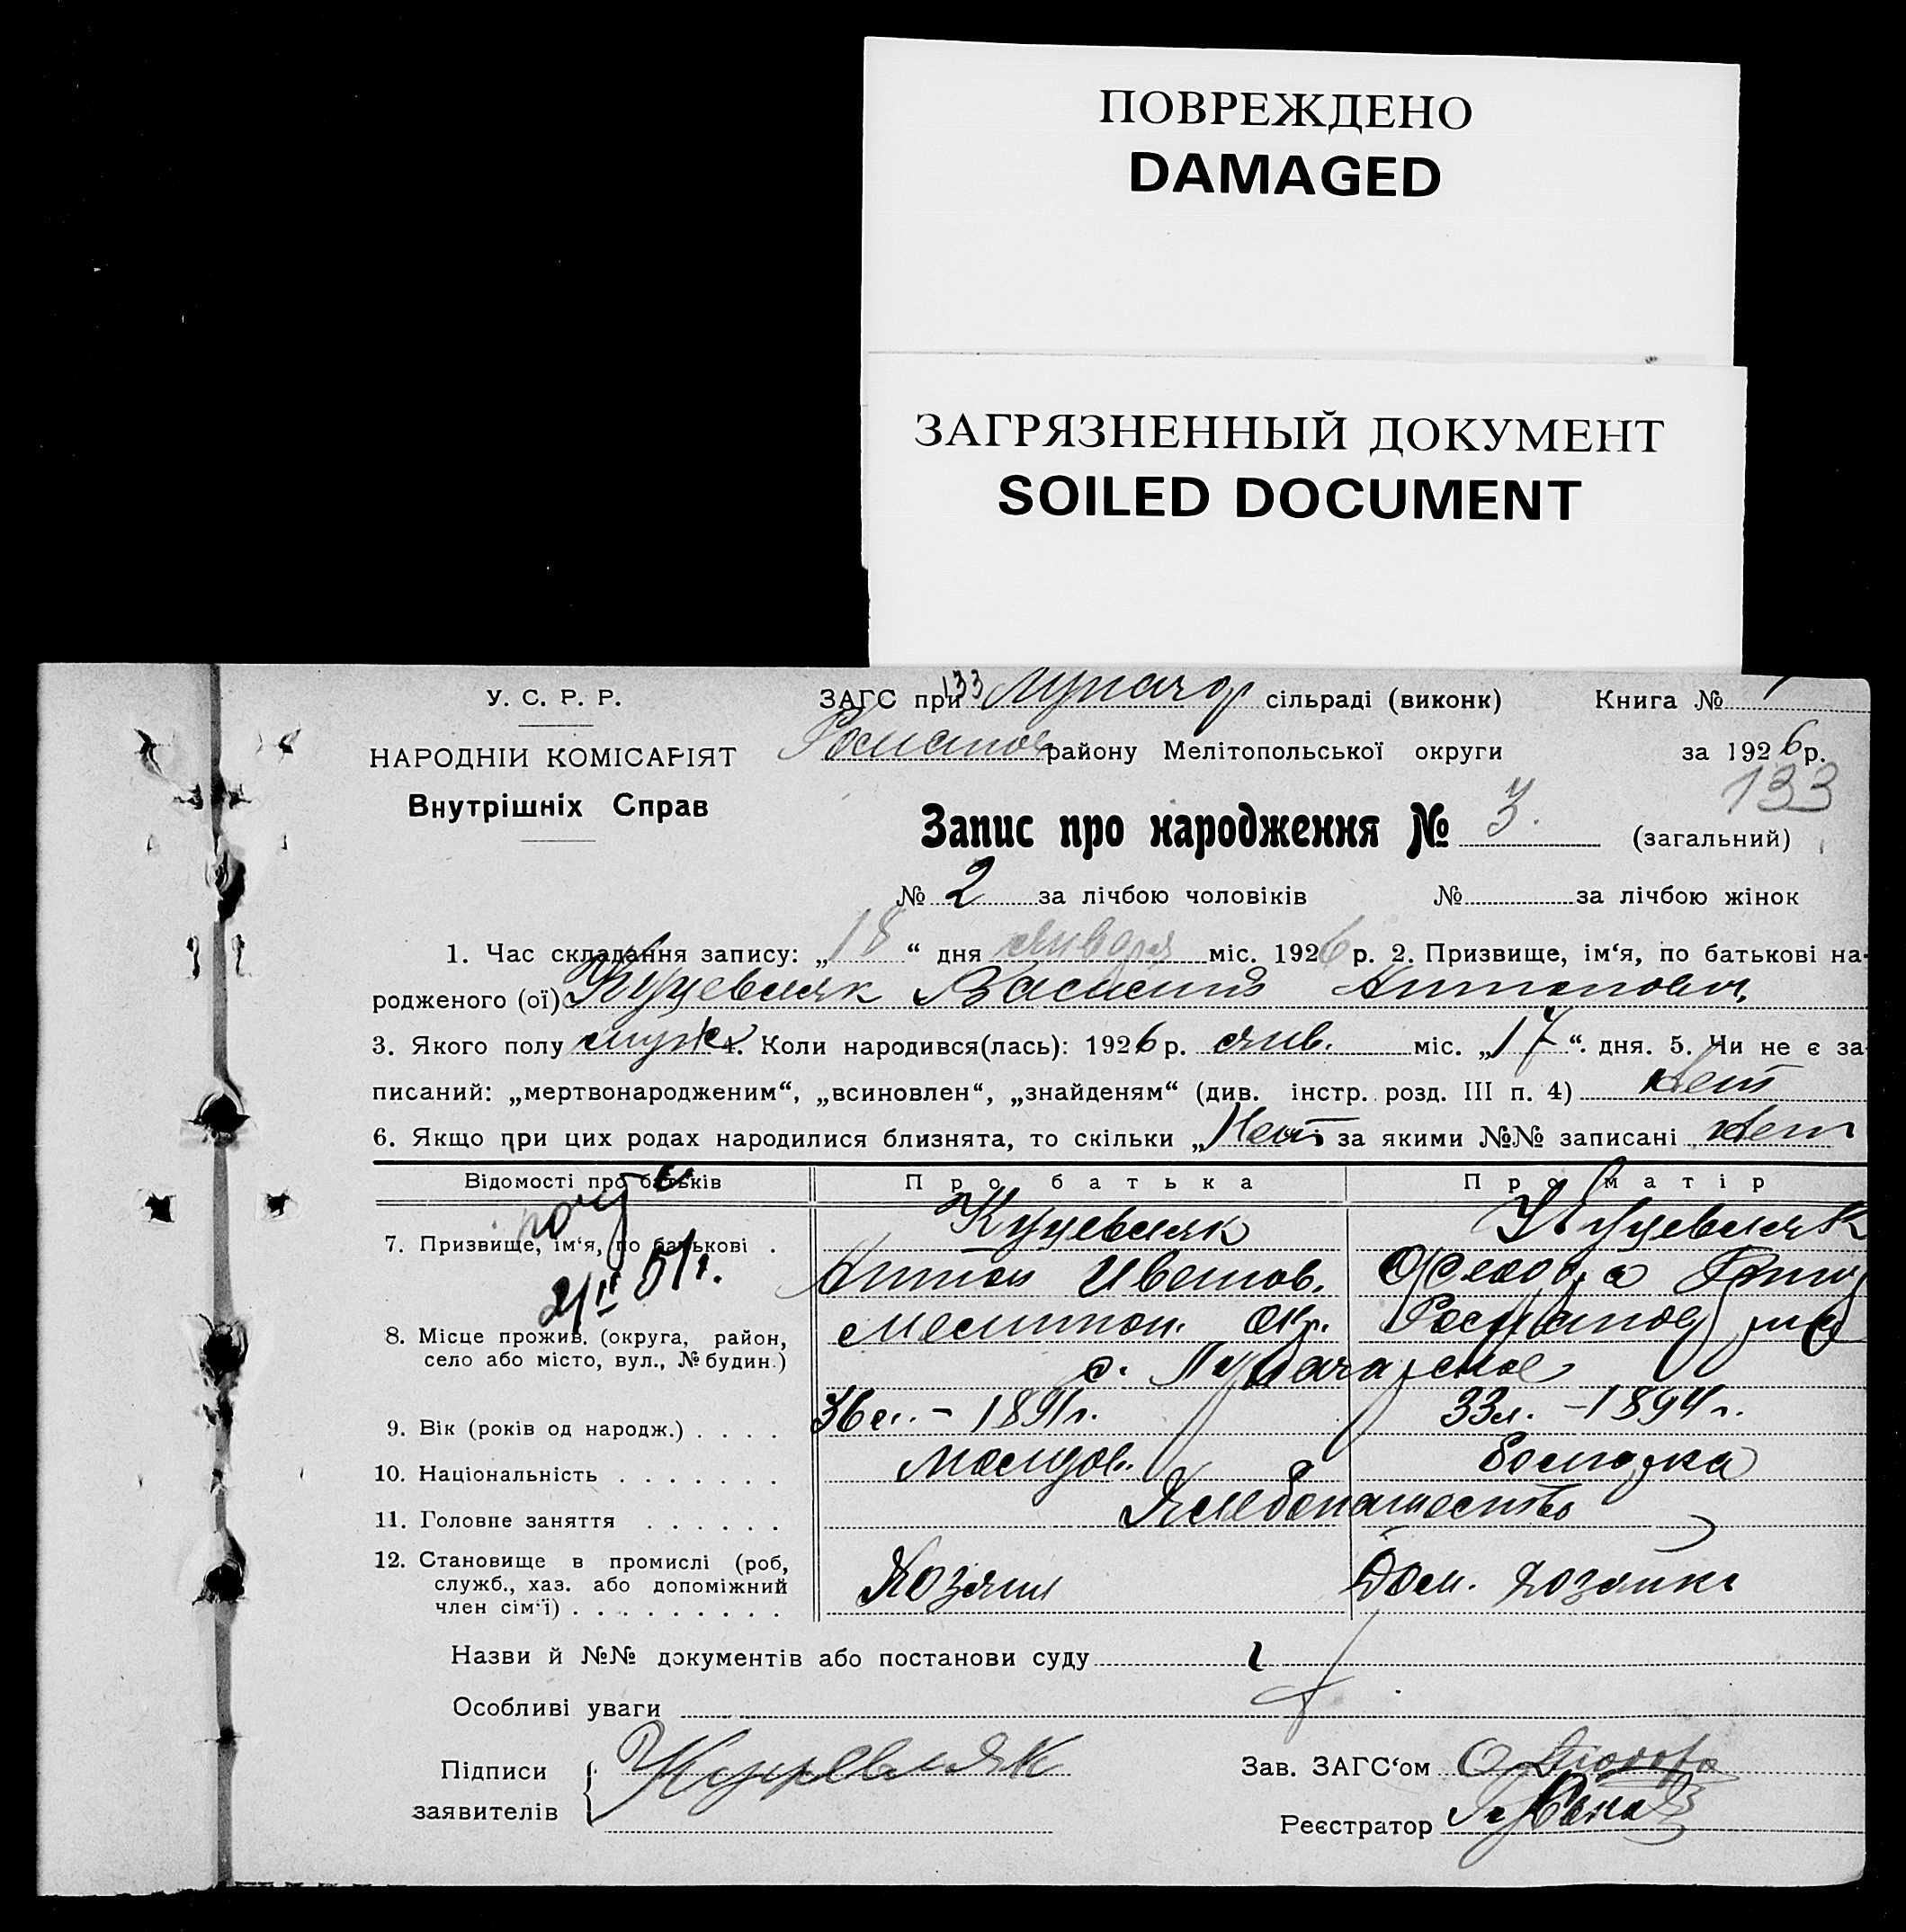 ПОВРЕЖДЕНО
DAMAGED
ЗАГРЯЗНЕННЫЙ ДОКУМЕНТ
SOILED DOCUMENT
У. С. Р. Р.
НАРОДНІЙ КОМІСАРІЯТ
Внутрішніх Справ
ЗАГС при 133 Луначар сільраді (виконк) Книга №
района Мелітопольської округи за 1926 р.
133
Запис про народження № 3. (загальний)
№ 2 за лічбою чоловіків № за лічбою жінок
1. Час складання запису: „18“ дня января міс. 1926 р. 2. Призвище, ім‘я, по батькові на-
родженого (ої) Куцевляк Василий Антонович
3. Якого полу муж 4. Коли народився(лась): 1926 р. янв. міс. „17“. дня. 5. Чи не є за-
писаний: „мертвонародженим“, „всиновлен“, „знайденям“ (див. інстр. розд. III п. 4) нет
6. Якщо при цих родах народилися близнята, то скільки „Нет за якими №№ записані нет
Відомості про батьків Про батька Про матір
7. Призвище, ім‘я, по батькові . Куцевляк Куцевляк
Антон Иванов.
51г.
8. Місце прожив. (округа, район, Мелитоп. окр.
село або місто, вул., № будин.) с. Луначарское
9. Вік (років од народж.) . . . . 36 л. – 1891г. 33л. – 1894г.
10. Національність . . . . . . . Молдов. Болгарка
11. Головне заняття . . . . . . Хлебопашество
12. Становище в промислі (роб, Хозяин Дом. хозяйка
служб., хаз. або допоміжний
член сім‘ї) . . . . . . . . .
Назви й №№ документів або постанови суду
Особливі уваги
Підписи Куцевляк Зав. ЗАГС‘ом
заявителів Реєстратор